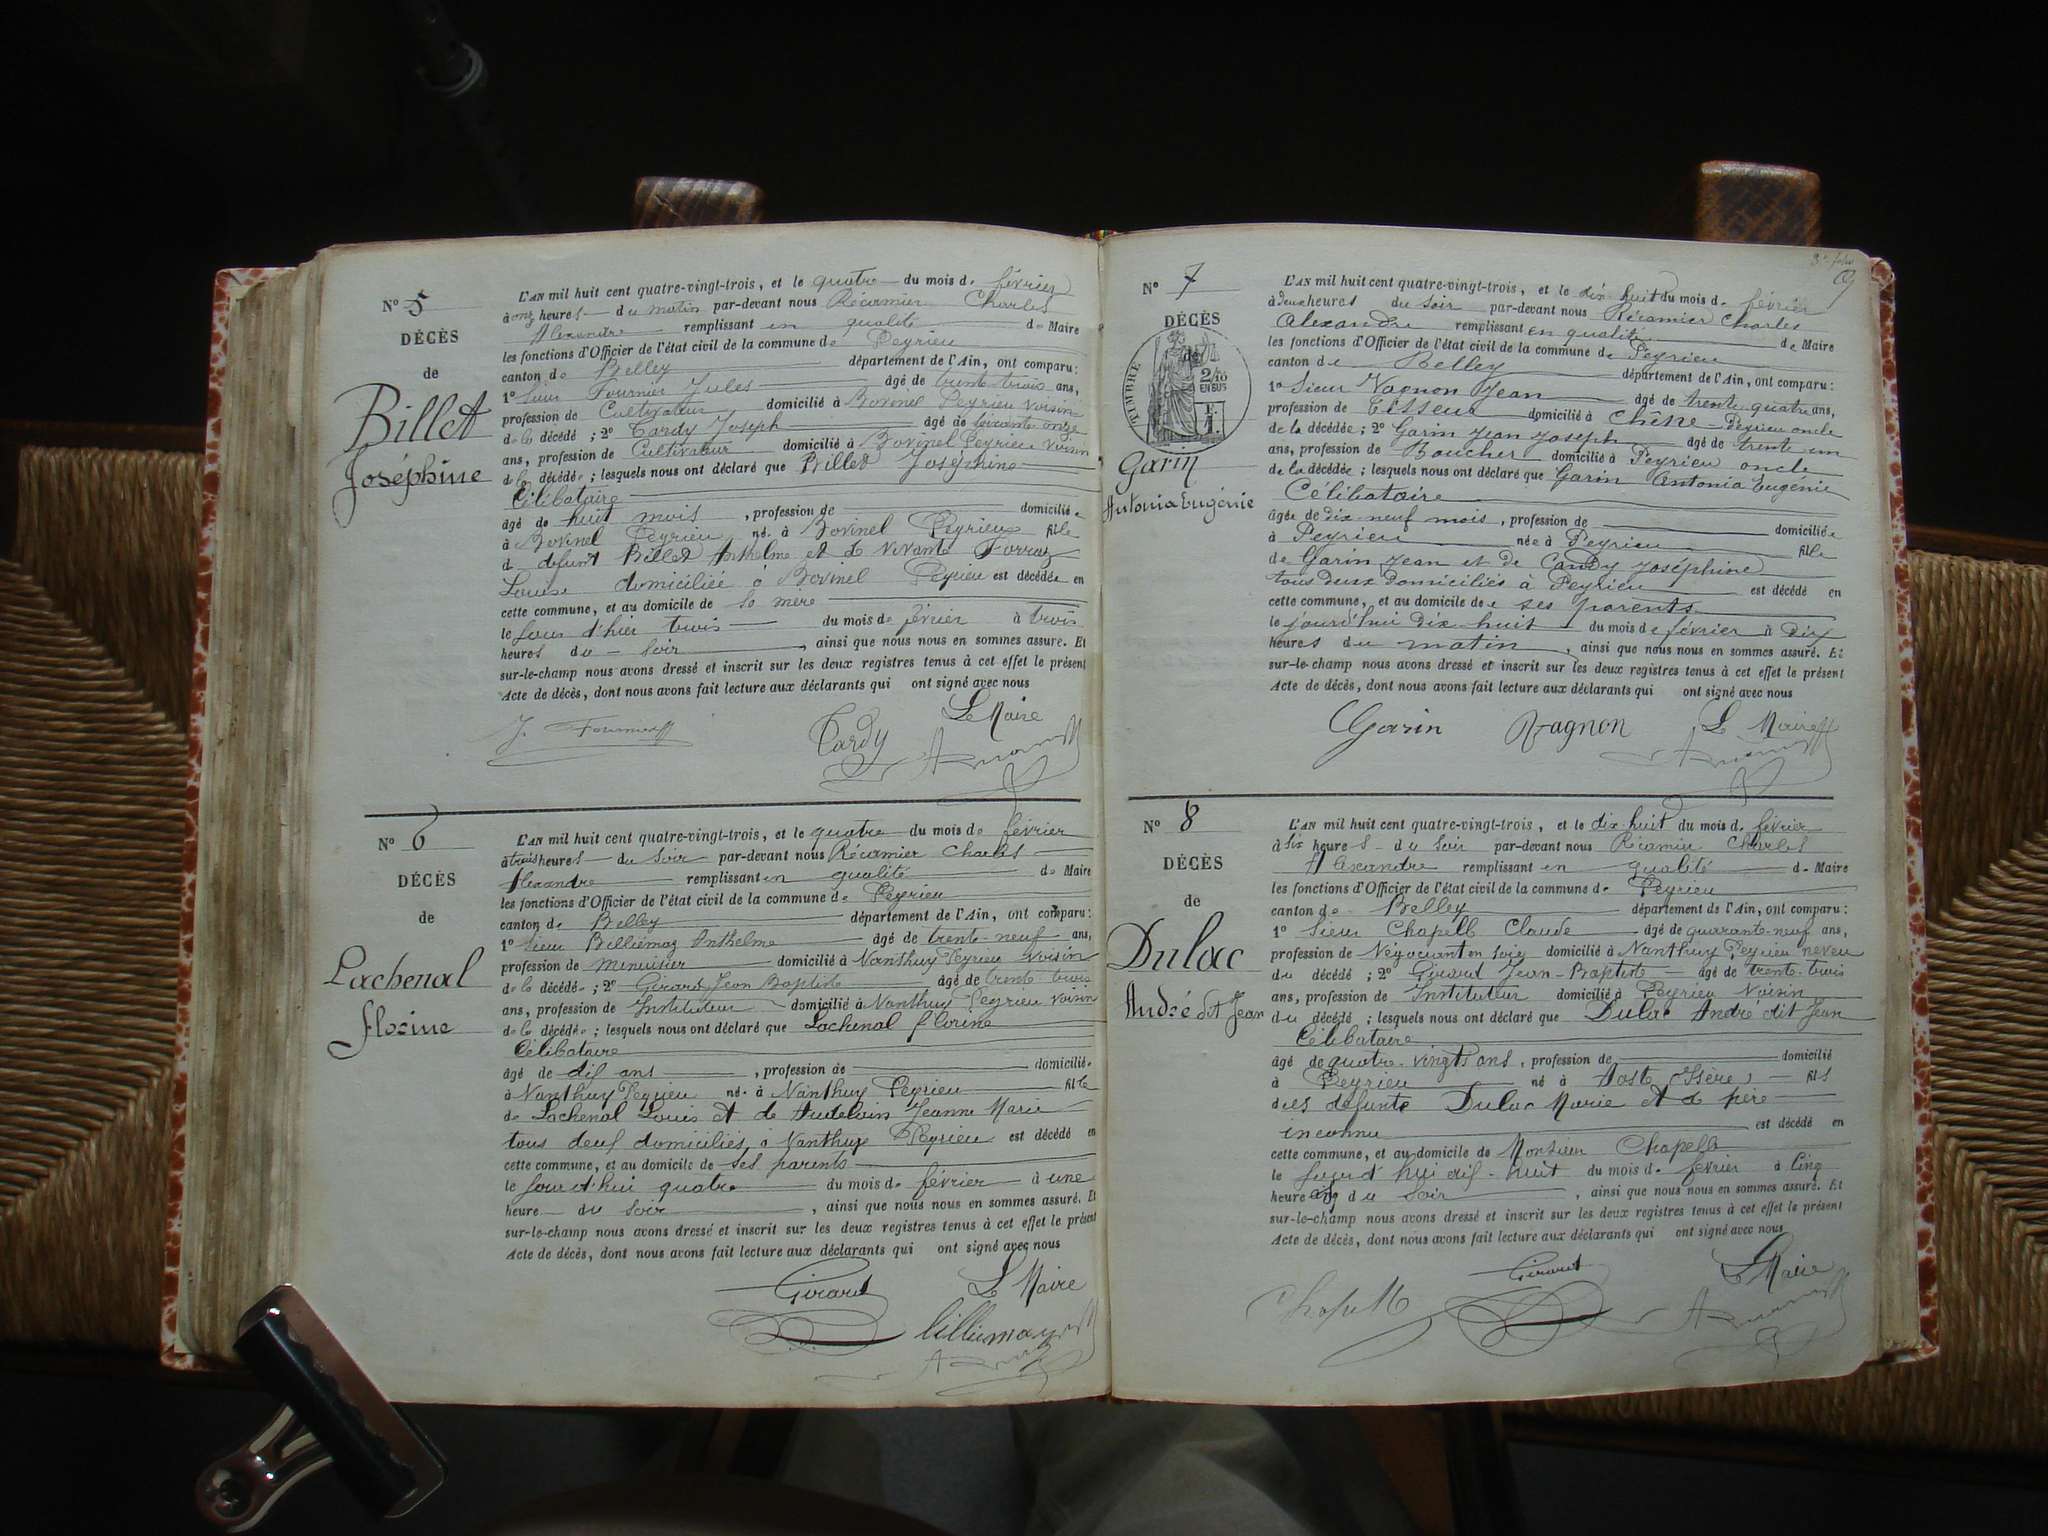 Nº 5
DÉCÈS
de
Billet
Joséphine
L'AN mil huit cent quatre-vingt-trois, et le quatre du mois de février
à onze heures du matin par-devant nous Récamier Charles
Alexandre remplissant en qualité de Maire
les fonctions d'Officier de l'état civil de la commune de Peyrieu
canton de Belley département de l'Ain, ont comparu:
1º Sieur Fournier Jules âgé de trente trois ans,
profession de Cultivateur domicilié à Bovinel Peyrieu voisin
de la décédé; 2º Tardy Joseph âgé de soixante onze
ans, profession de Cultivateur domicilié à Bovinel Peyrieu voisin
de la décédée; lesquels nous ont déclaré que Billet Joséphine
Célibataire
âgé de huit mois, profession de domiciliée
à Bovinel Peyrieu née à Bovinel Peyrieu fille
de defunt Billet Anthelme et de vivante
Louise domiciliée à Bovinel Peyrieu est décédée en
cette commune, et au domicile de sa mère
le jour d'hier trois du mois de février à trois
heures du soir, ainsi que nous nous en sommes assuré. Et
sur-le-champ nous avons dressé et inscrit sur les deux registres tenus à cet effet le présent
Acte de décès, dont nous avons fait lecture aux déclarants qui ont signé avec nous
Le Maire
J. Fournier Tardy
Nº 6
DÉCÈS
de
Lachenal
florine
L'AN mil huit cent quatre-vingt-trois, et le quatre du mois de février
à trois heures du soir par-devant nous Récamier Charles
Alexandre remplissant en qualité de Maire
les fonctions d'Officier de l'état civil de la commune de Peyrieu
canton de Belley département de l'Ain, ont comparu:
1º Sieur Billiemaz Anthelme âgé de trente-neuf ans,
profession de menuisier domicilié à Nanthuy Peyrieu voisin
de la décédée; 2º Girard Jean Baptiste âgé de trente trois
ans, profession de Instituteur domicilié à Nanthuy Peyrieu voisin
de la décédée; lesquels nous ont déclaré que Lachenal florine
Célibataire
âgé de dix ans, profession de domiciliée
à Nanthuy Peyrieu née à Nanthuy Peyrieu fille
de Lachenal Louis et de Jeanne Marie
tous deux domiciliés à Nanthuy Peyrieu est décédé en
cette commune, et au domicile de ses parents
le jour d'hui quatre du mois de février à une
heure du soir, ainsi que nous nous en sommes assuré. Et
sur-le-champ nous avons dressé et inscrit sur les deux registres tenus à cet effet le présent
Acte de décès, dont nous avons fait lecture aux déclarants qui ont signé avec nous
Girard Le Maire
billiemaz
Nº 7
DÉCÈS
de
TIMBRE
2/10
EN SUS
Garin
Antonia Eugénie
L'AN mil huit cent quatre-vingt-trois, et le dix huit du mois de février
à deux heures du soir par-devant nous Récamier Charles
Alexandre remplissant en qualité de Maire
les fonctions d'Officier de l'état civil de la commune de Peyrieu
canton de Belley département de l'Ain, ont comparu:
1º Sieur Vagnon Jean âgé de trente quatre ans,
profession de Tisseur domicilié à Chêne Peyrieu oncle
de la décédée; 2º Garin Jean Joseph âgé de trente un
ans, profession de Boucher domicilié à Peyrieu oncle
de la décédée; lesquels nous ont déclaré que Garin Antonia Eugénie
Célibataire
âgée de dix neuf mois, profession de domiciliée
à Peyrieu née à Peyrieu fille
de Garin Jean et de Candy Joséphine
tous deux domiciliés à Peyrieu est décédé en
cette commune, et au domicile de ses parents
le jourd'hui dix huit du mois de février à dix
heures du matin, ainsi que nous nous en sommes assuré. Et
sur-le-champ nous avons dressé et inscrit sur les deux registres tenus à cet effet le présent
Acte de décès, dont nous avons fait lecture aux déclarants qui ont signé avec nous
Garin Vagnon Le Maire
Nº 8
DÉCÈS
de
Dulac
André dit Jean
L'AN mil huit cent quatre-vingt-trois, et le dix huit du mois de février
à six heures du soir par-devant nous Récamier Charles
Alexandre remplissant en qualité de Maire
les fonctions d'Officier de l'état civil de la commune de Peyrieu
canton de Belley département de l'Ain, ont comparu:
1º Sieur Chapell Claude âgé de quarante-neuf ans,
profession de Négociant en soie domicilié à Nanthuy Peyrieu neveu
du décédé; 2º Girard Jean-Baptiste âgé de trente trois
ans, profession de Instituteur domicilié à Peyrieu Voisin
du décédé; lesquels nous ont déclaré que Dulac André dit Jean
Célibataire
âgé de quatre-vingts ans, profession de domicilié
à Peyrieu né à Aoste (Isère) fils
des défunts Dulac Marie et de père
inconnu est décédé en
cette commune, et au domicile de Monsieur Chapell
le jourd'hui dix-huit du mois de février à cinq
heure du soir, ainsi que nous nous en sommes assuré. Et
sur-le-champ nous avons dressé et inscrit sur les deux registres tenus à cet effet le présent
Acte de décès, dont nous avons fait lecture aux déclarants qui ont signé avec nous
Chapell Girard Le Maire